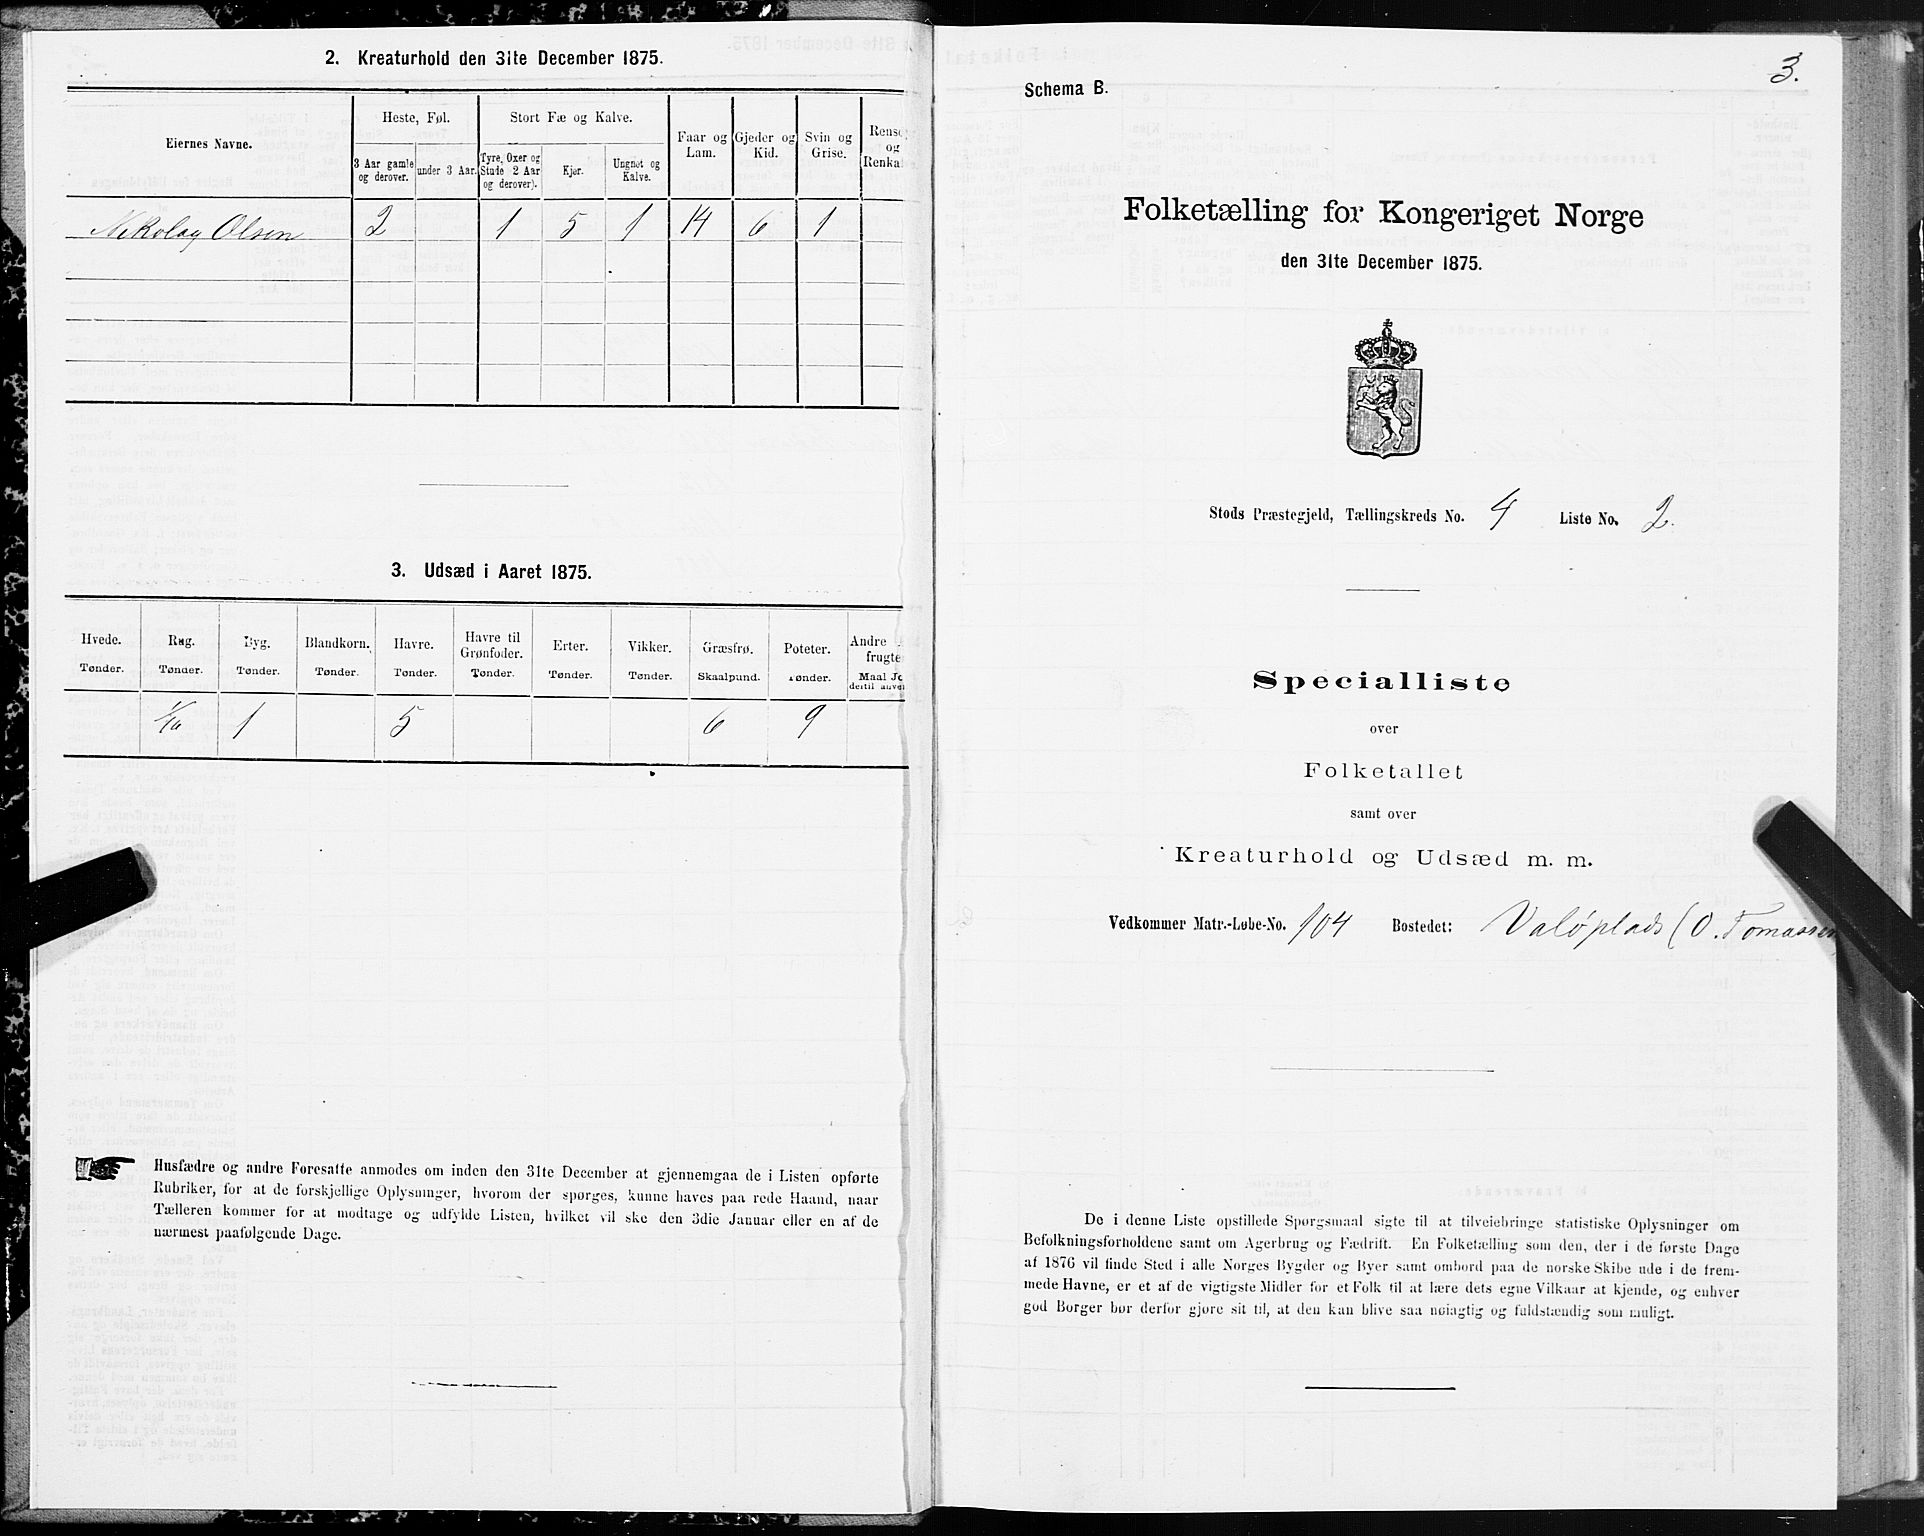 2. Kreaturhold den 31te December 1875.
Eiernes Navne.
Heste, Føl.
Stort Fæ og Kalve.
3 Aar gamle og derover.
under 3 Aar.
Tyre, Oxer og Stude 2 Aar og derover).
Kjør.
Ungnøt og Kalve.
Faar og Lam.
Gjeder og Kid.
Svin og Grise.
og
Nikolay Olsen 2 1 5 1 14 6 1
3. Udsæd i Aaret 1875.
Hvede. Rug. Byg. Blandkorn. Havre. Havre til Grønfoder. Erter. Vikker. Græsfrø. Poteter. Andre
Tønder. Tønder. Tønder. Tønder. Tønder. Tønder. Tønder. Tønder. Skaalpund. Tønder. Maal
1/16 1 5 6 9
Husfædre og andre Foresatte anmodes om inden den 31te December at gjennemgaa de i Listen opførte
Rubriker, for at de forskjellige Oplysninger, hvorom der spørges, kunne haves paa rede Haand, naar
Tælleren kommer for at modtage og udfylde Listen, hvilket vil ske den 3die Januar eller en af de
nærmest paafølgende Dage.
3.
Schema B.
Folketælling for Kongeriget Norge
den 31te December 1875.
Stods Præstegjeld, Tællingskreds No. 4 Liste No. 2.
Specialliste
over
Folketallet
samt over
Kreaturhold og Udsæd m. m.
Vedkommer Matr.-Løbe-No. 104 Bostedet: Valøplads (O. Tomassen
De i denne Liste opstillede Spørgsmaal sigte til at tilveiebringe statistiske Oplysninger om
Befolkningsforholdene samt om Agerbrug og Fædrift. En Folketælling som den, der i de første Dage
af 1876 vil finde Sted i alle Norges Bygder og Byer samt ombord paa de norske Skibe ude i de frem-
mede Havne, er et af de vigtigste Midler for et Folk til at lære dets egne Vilkaar at kjende, og enhver
god Borger bør derfor gjøre sit til, at den kan blive saa nøiagtig og fuldstændig som muligt.